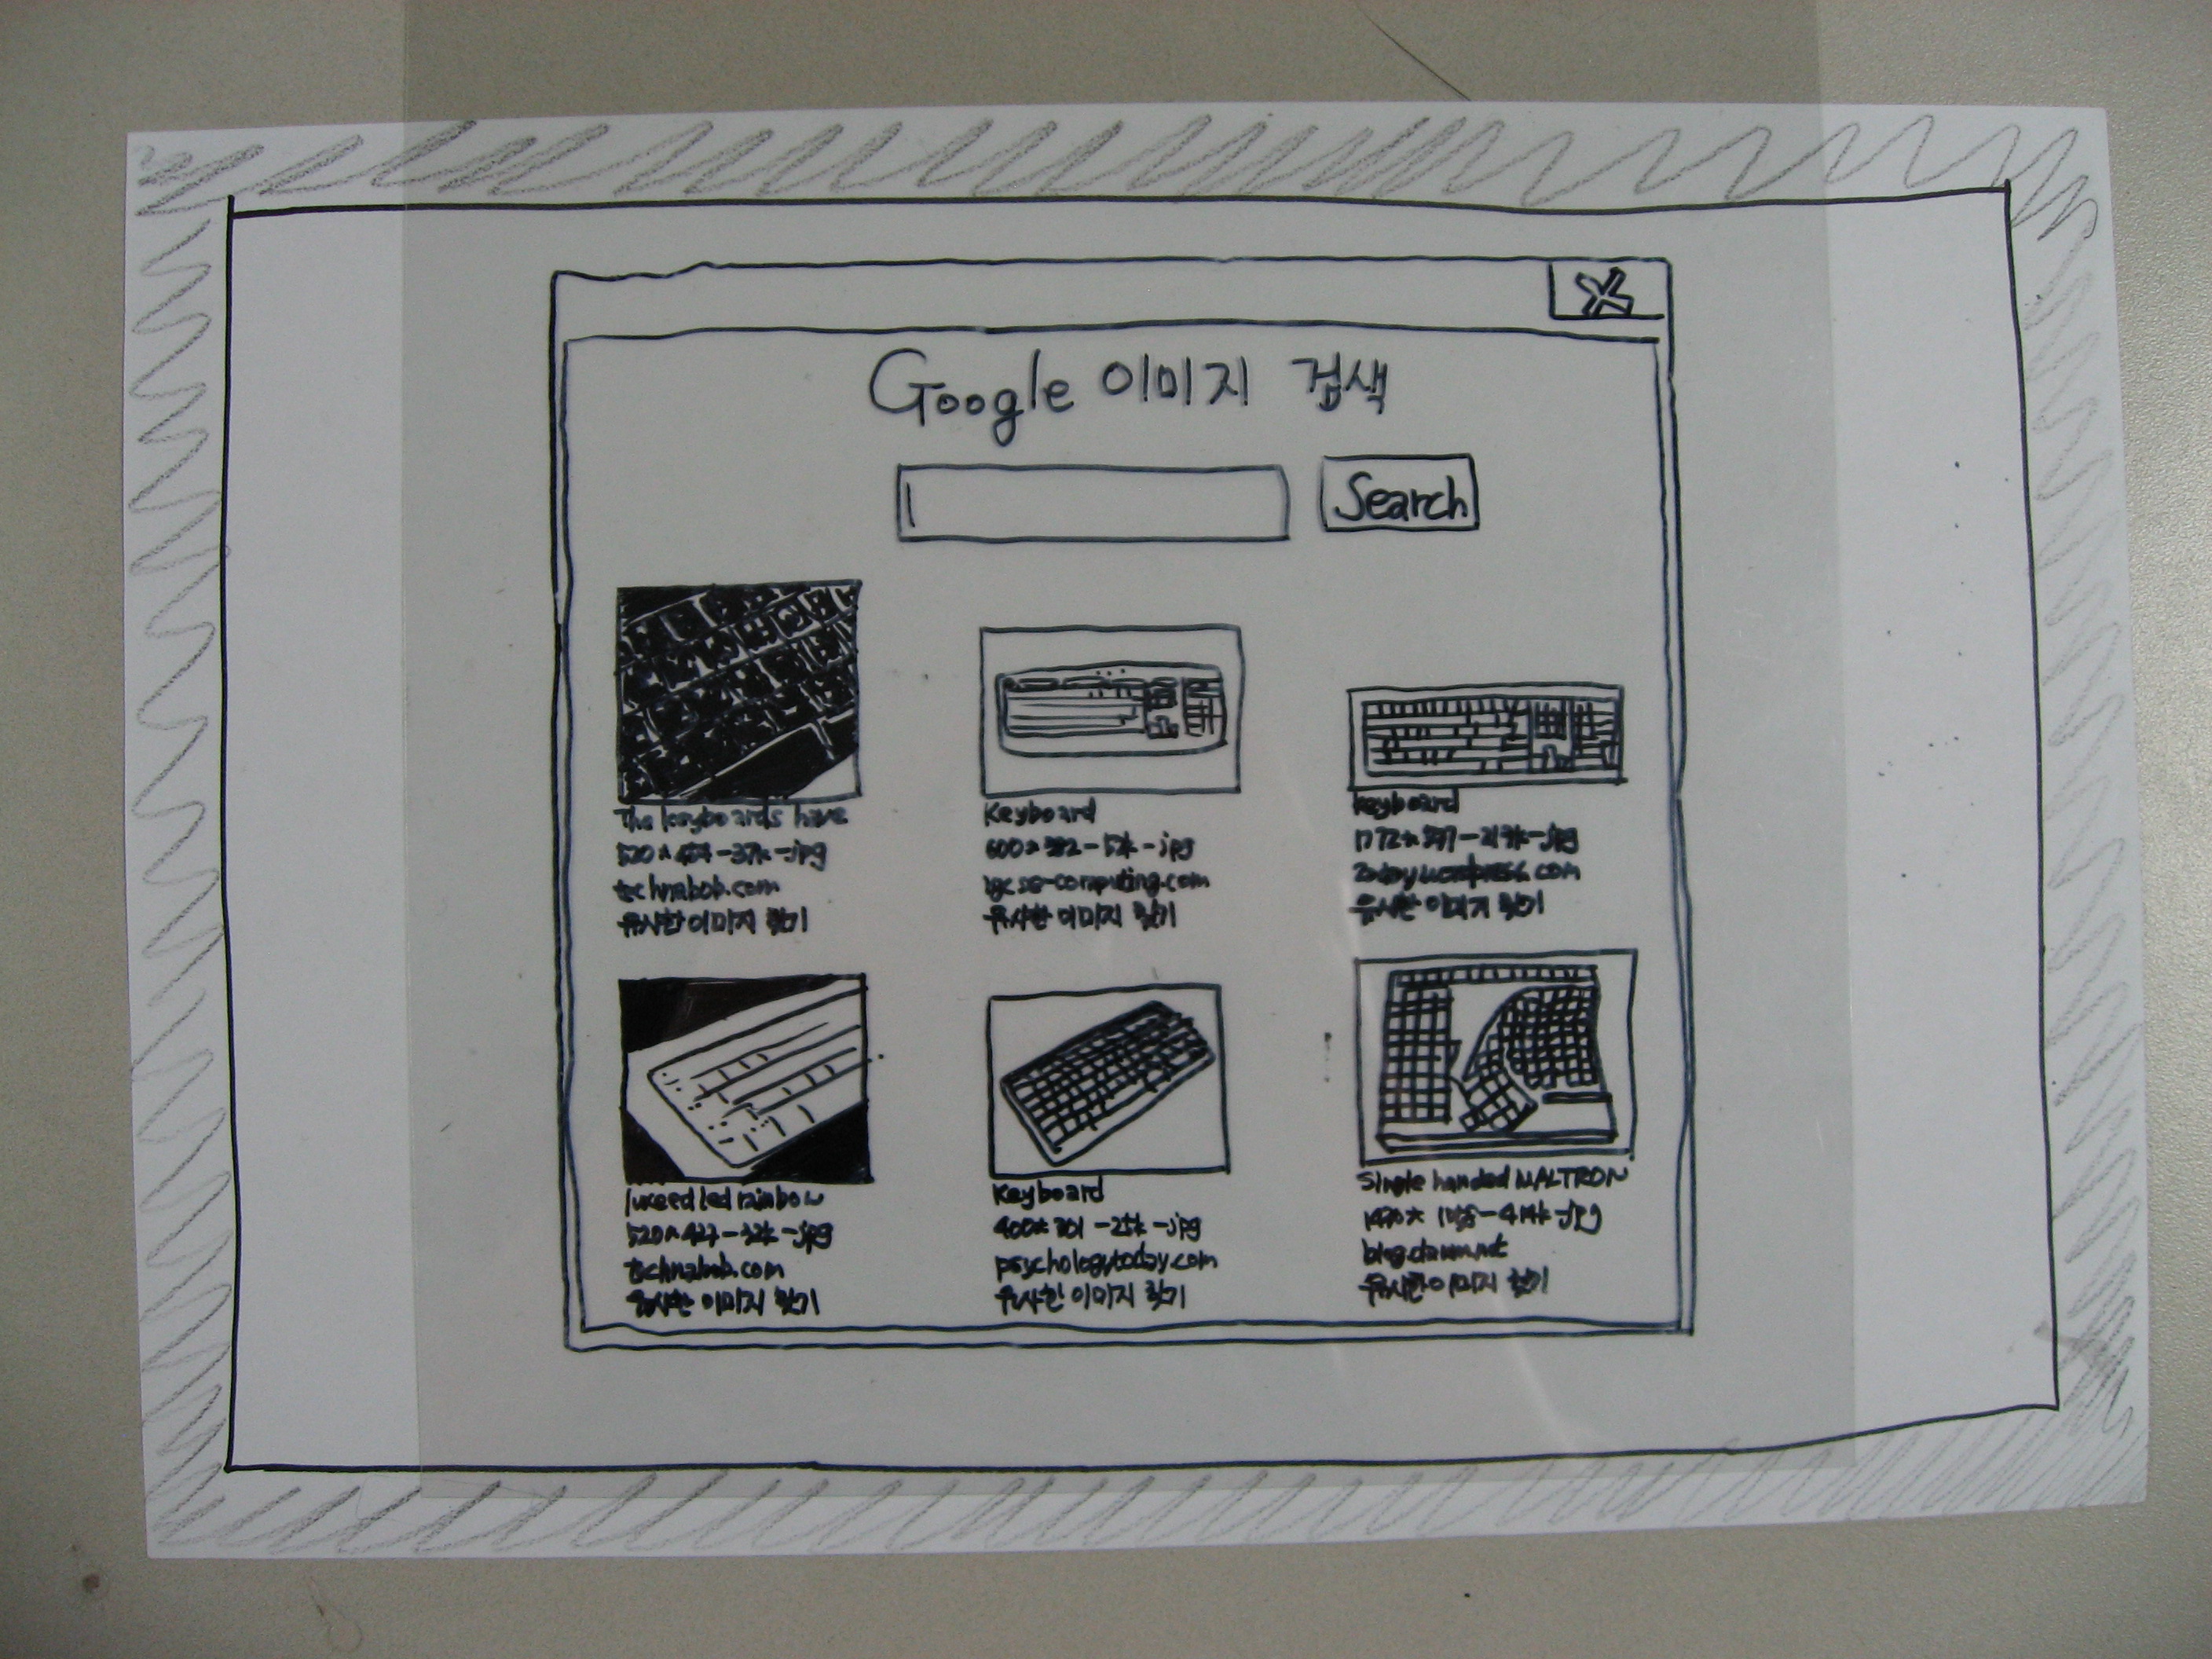 Google 이미지 검색
Search
The keyboards have
520 × -37k -jpg
technabob.com
유사한 이미지 찾기
Keyboard
600 × -52k -jpg
igcse-computing.com
유사한 이미지 찾기
keyboard
1772 × -jpg
2oday.wordpress.com
유사한 이미지 찾기
luxeed led rainbow
520 × 427 -32k -jpg
technabob.com
유사한 이미지 찾기
Keyboard
400 × 301 -25k -jpg
psychologytoday.com
유사한 이미지 찾기
Single handed MALTRON
-414k -jpg
blog.daum.net
유사한 이미지 찾기